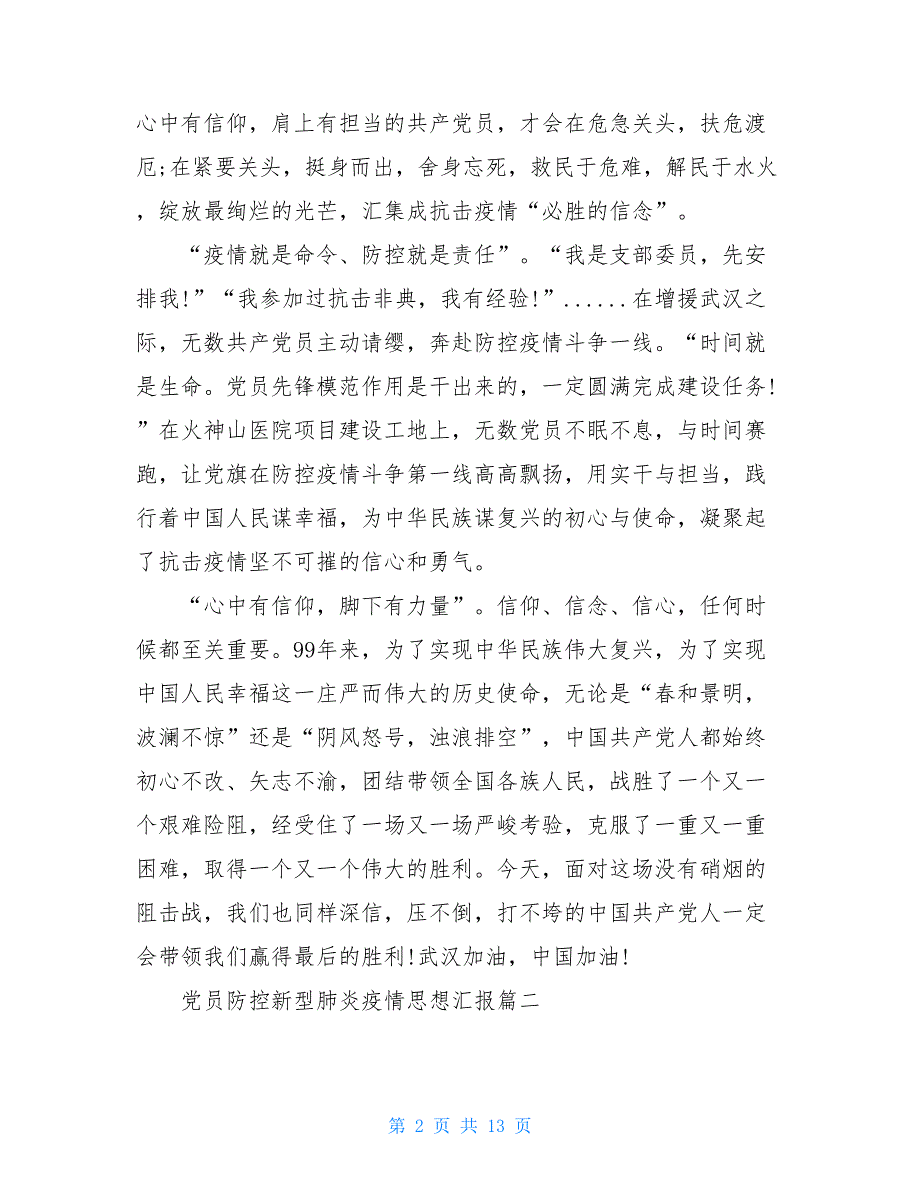 心中有信仰，肩上有担当的共产党员，才会在危急关头，扶危渡
厄;在紧要关头，挺身而出，舍身忘死，救民于危难，解民于水火
，绽放最绚烂的光芒，汇集成抗击疫情“必胜的信念”。
“疫情就是命令、防控就是责任”。“我是支部委员，先安
排我!”“我参加过抗击非典，我有经验!”......在增援武汉之
际，无数共产党员主动请缨，奔赴防控疫情斗争一线。“时间就
是生命。党员先锋模范作用是干出来的，一定圆满完成建设任务!
”在火神山医院项目建设工地上，无数党员不眠不息，与时间赛
跑，让党旗在防控疫情斗争第一线高高飘扬，用实干与担当，践
行着中国人民谋幸福，为中华民族谋复兴的初心与使命，凝聚起
了抗击疫情坚不可摧的信心和勇气。
“心中有信仰，脚下有力量”。信仰、信念、信心，任何时
候都至关重要。99年来，为了实现中华民族伟大复兴，为了实现
中国人民幸福这一庄严而伟大的历史使命，无论是“春和景明，
波澜不惊”还是“阴风怒号，浊浪排空”，中国共产党人都始终
初心不改、矢志不渝，团结带领全国各族人民，战胜了一个又一
个艰难险阻，经受住了一场又一场严峻考验，克服了一重又一重
困难，取得一个又一个伟大的胜利。今天，面对这场没有硝烟的
阻击战，我们也同样深信，压不倒，打不垮的中国共产党人一定
会带领我们赢得最后的胜利!武汉加油，中国加油!
党员防控新型肺炎疫情思想汇报篇二
第 2 页 共 13 页